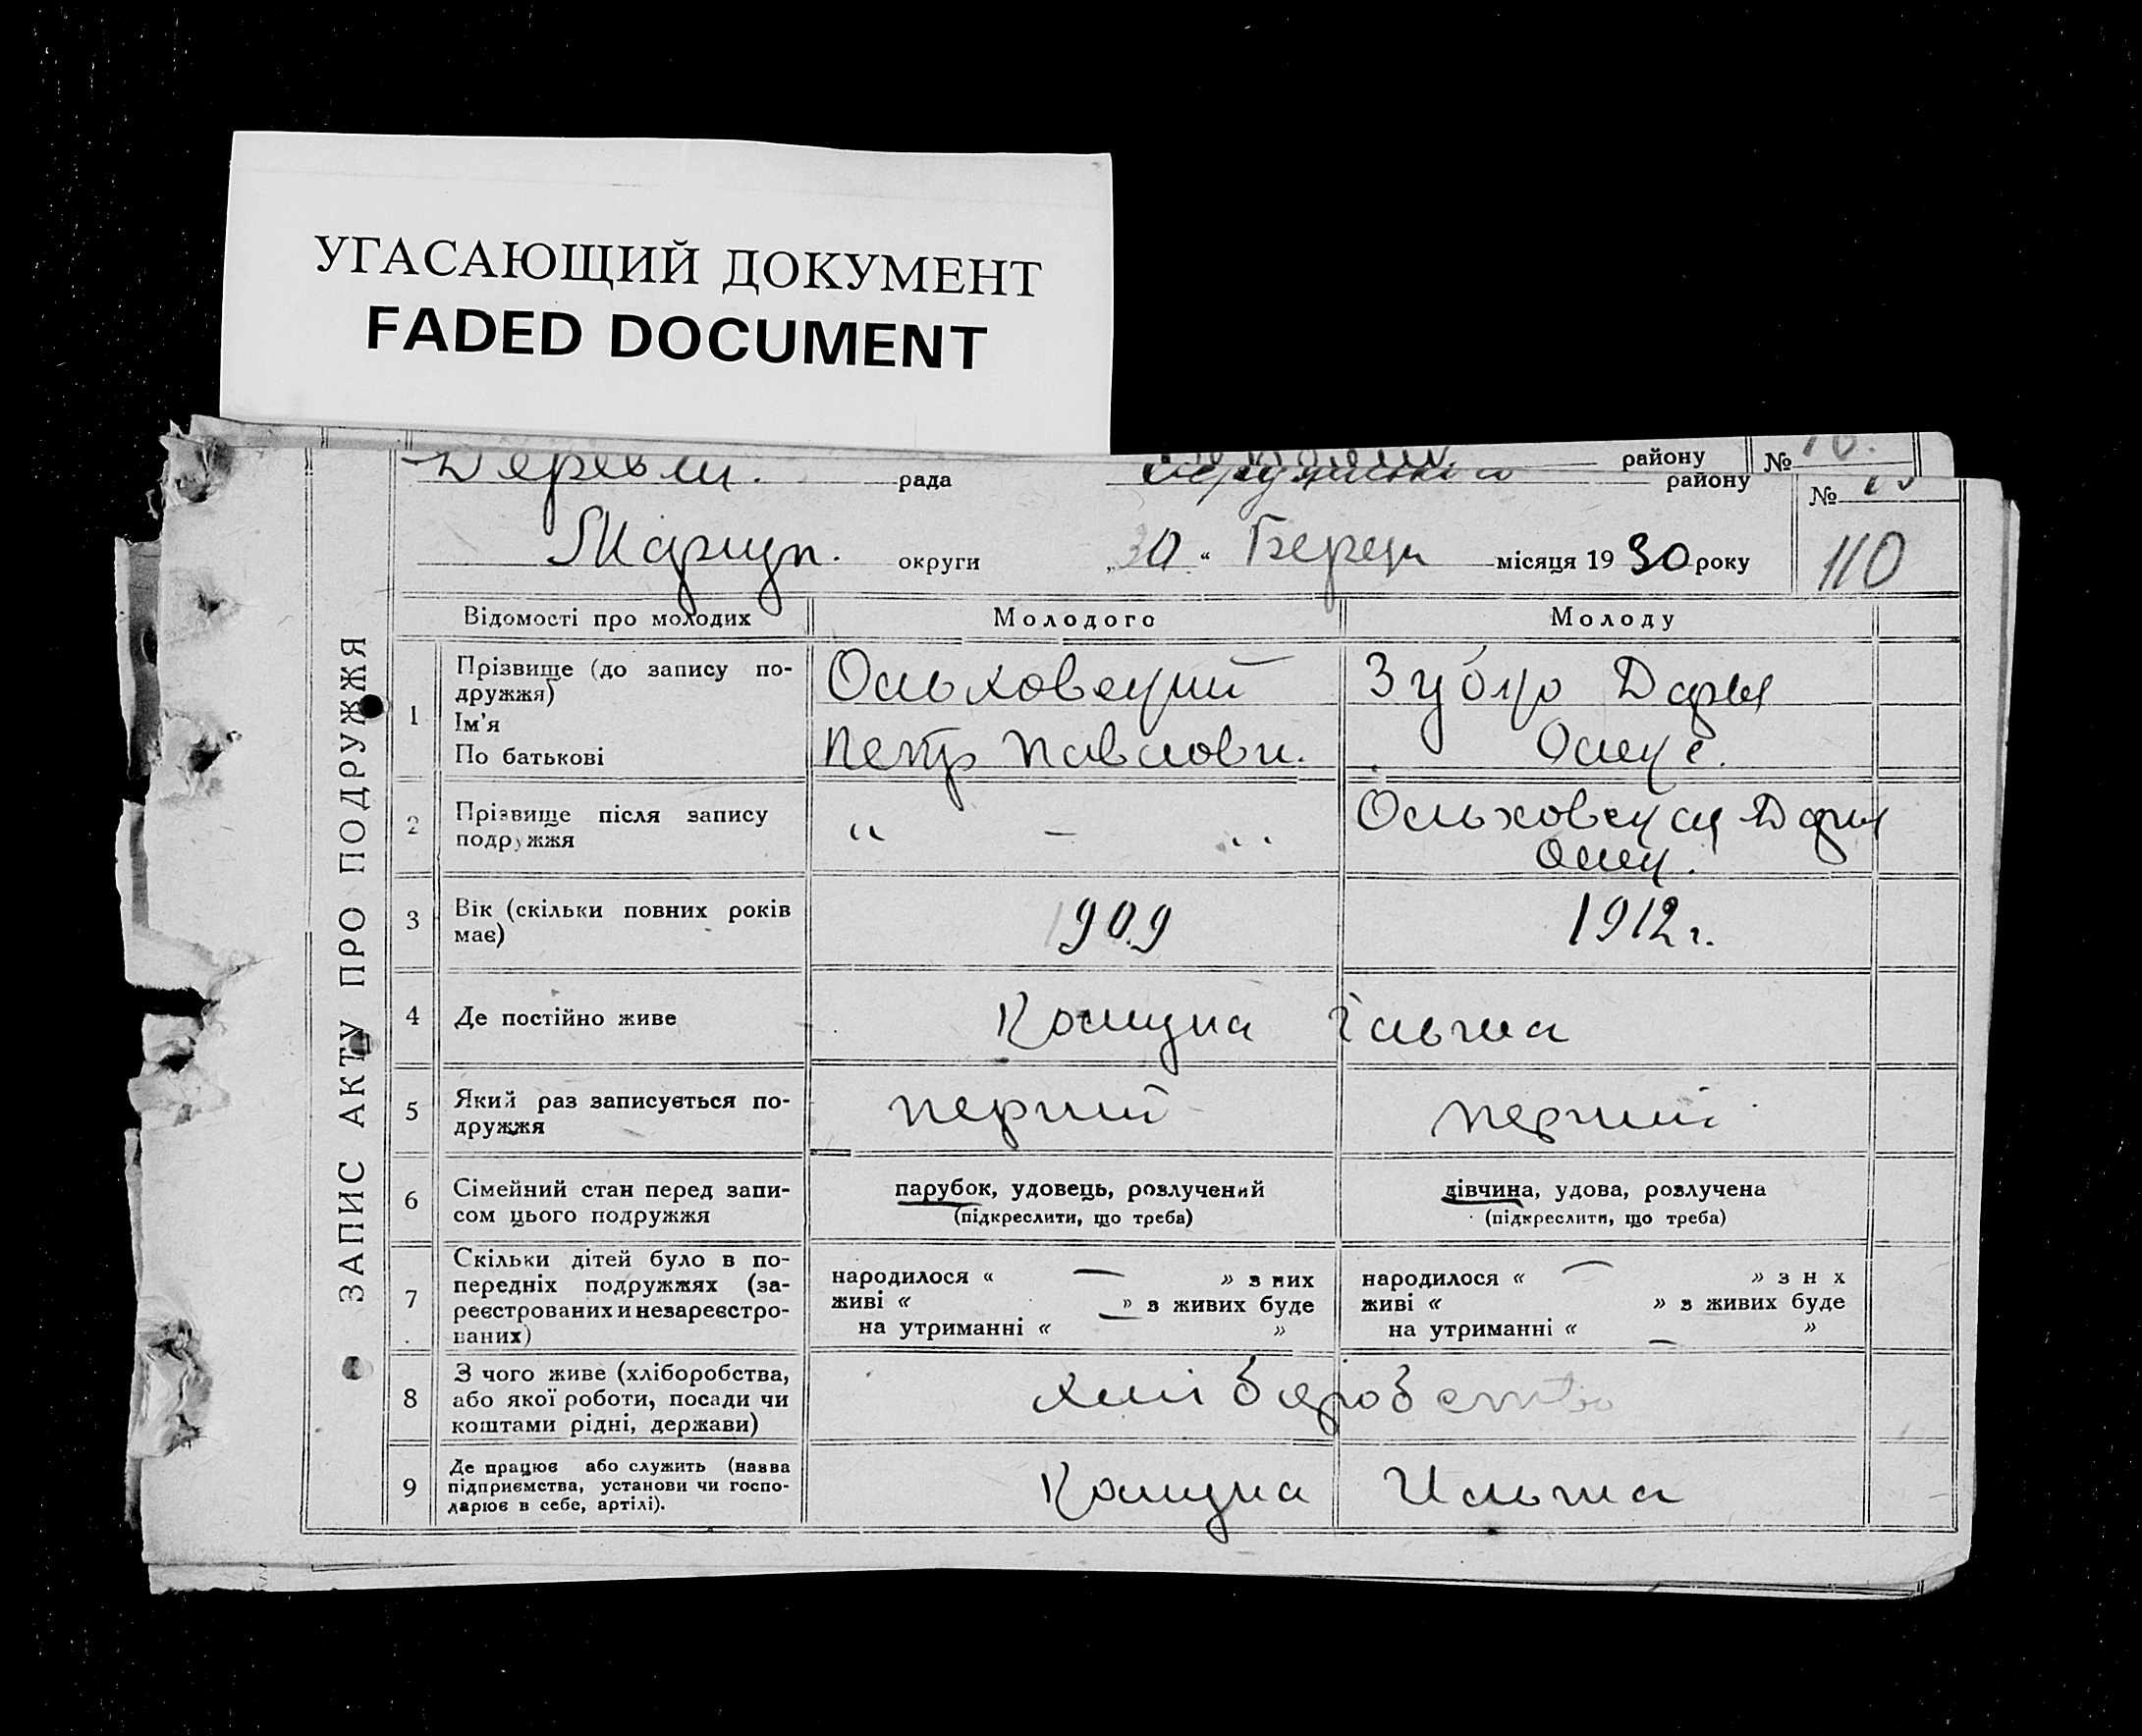 УГАСАЮЩИЙ ДОКУМЕНТ
FADED DOCUMENT
району №
рада району №
Мариуп. округи „30“ Берез місяця 1930 року 110
ЗАПИС АКТУ ПРО ПОДРУЖЖЯ
Відомості про молодих Молодого Молоду
1 Прізвище (до запису по-
дружжя)
Ім'я
По батькові
Ольховецкий
Петр Павлови.
Дарья
2 Прізвище після запису
подружжя
„ – „
Ольховецкая Дарья
3 Вік (скільки повних років
має)
1909 1912 г.
4 Де постійно живе Комуна
5 Який раз записується по-
дружжя
перший перший
6 Сімейний стан перед запи-
сом цього подружжя
парубок, удовець, розлучений
(підкреслити, що треба)
дівчина, удова, розлучена
(підкреслити, що треба)
7 Скільки дітей було в по-
передніх подружжях (за-
реєстрованих и незареєстро-
ваних)
народилося « — » з них
живі « — » з живих буде
на утриманні « »
народилося « — » з н х
живі « » з живих буде
на утриманні « — »
8 З чого живе (хліборобства,
або якої роботи, посади чи
коштами рідні, держави)
хлібиробство
9 Де працює або служить (назва
підприємства, установи чи госпо-
дарює в себе, артілі).
Комуна